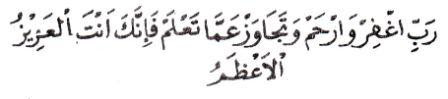 رَبِّ اغْفِرْ وَارْحَمْ وَتَجَاوَزْ عَمَّا تَعْلَمْ فَإِنَّكَ اَنْتَ الْعَزِيْزُ
الْاَعْظَمُ